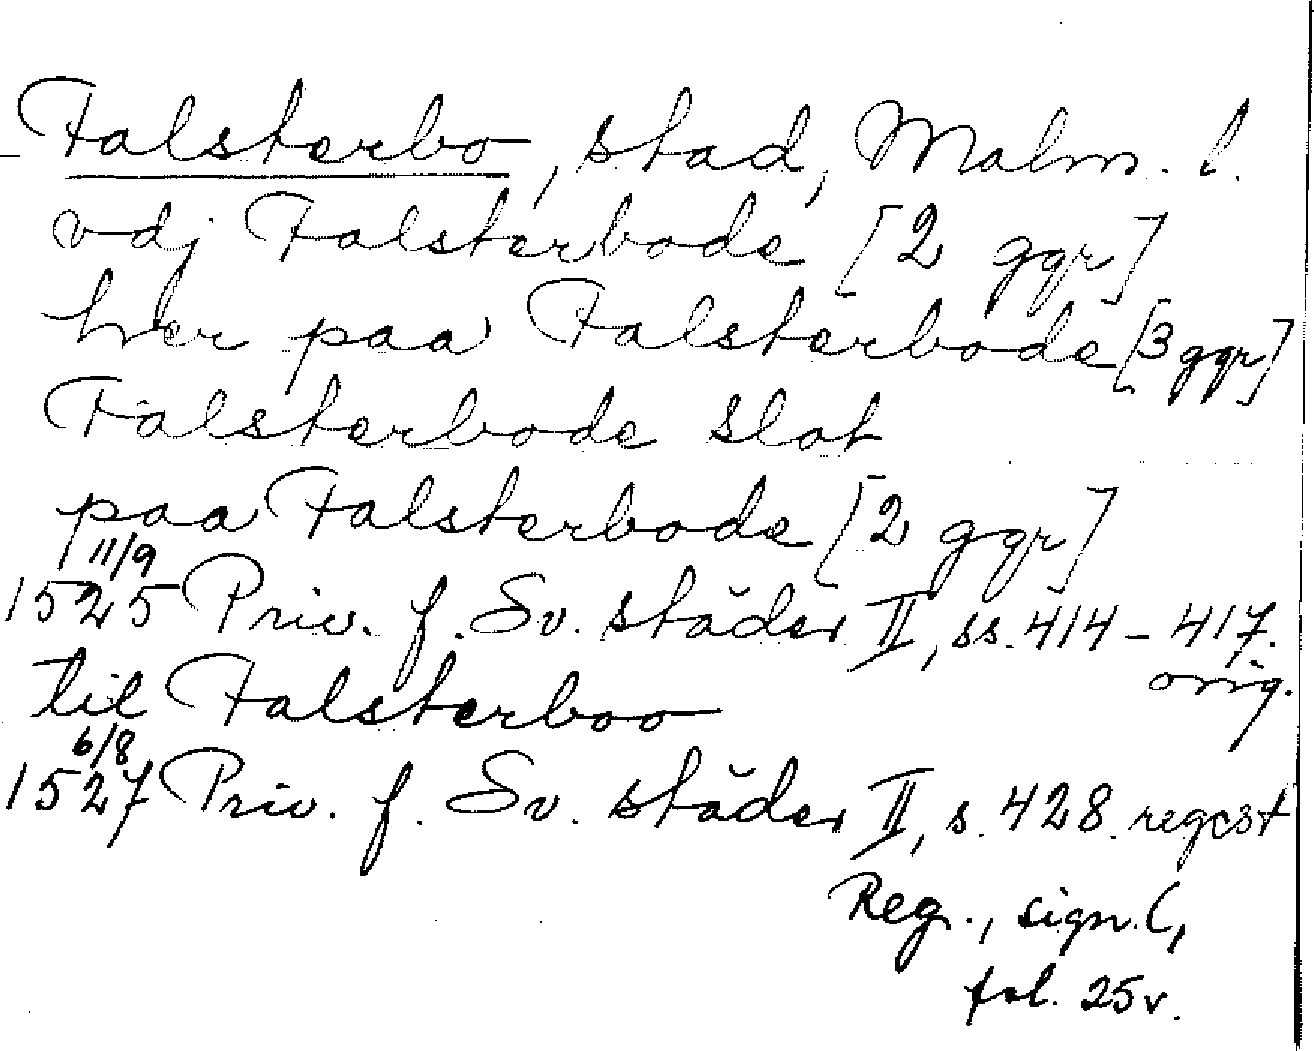 Falsterbo, stad, Malm. l.
vdj Falsterbode [2 ggr]
her paa Falsterbode [3 ggr]
Falsterbode slot
paa Falsterbode [2 ggr]
11/9
1525 Priv. f. Sv. städer II, ss. 414-417.
orig.
til Falsterboo
6/8
1527 Priv. f. Sv. städer II, s. 428. regest
Reg., sign. C,
fol. 25v.